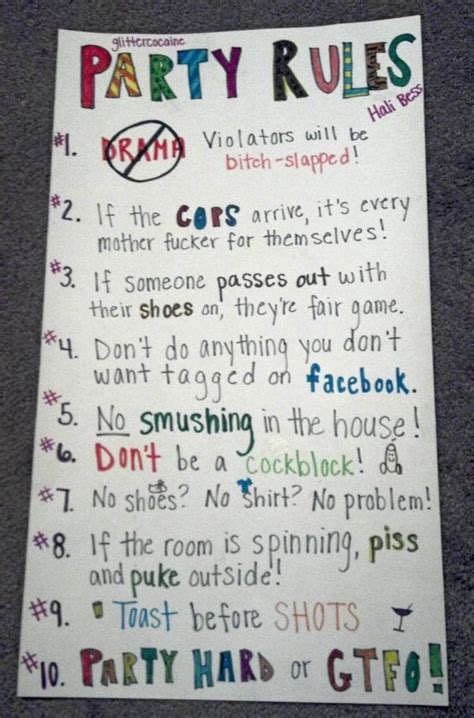 glittercocaine
PARTY RULES
Hali Bess
#1. DRAMA Violators will be
bitch-slapped!
#2. If the COPS arrive, it's every
mother fucker for themselves!
#3. If someone passes out with
their shoes on, they're fair game.
#4. Don't do anything you don't
want tagged on facebook.
#5. No smushing in the house!
#6. Don't be a cockblock!
#7. No shoes? No shirt? No problem!
#8. If the room is spinning, piss
and puke outside!
#9. Toast before SHOTS
#10. PARTY HARD or GTFO!